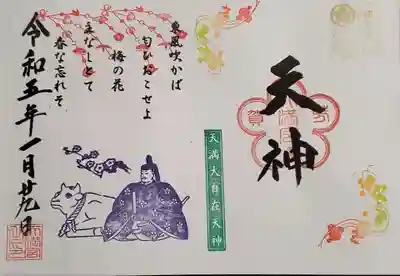 天神
天満大自在天神
東風吹かば
匂ひおこせよ
梅の花
主なしとて
春な忘れそ
令和五年一月廿九日